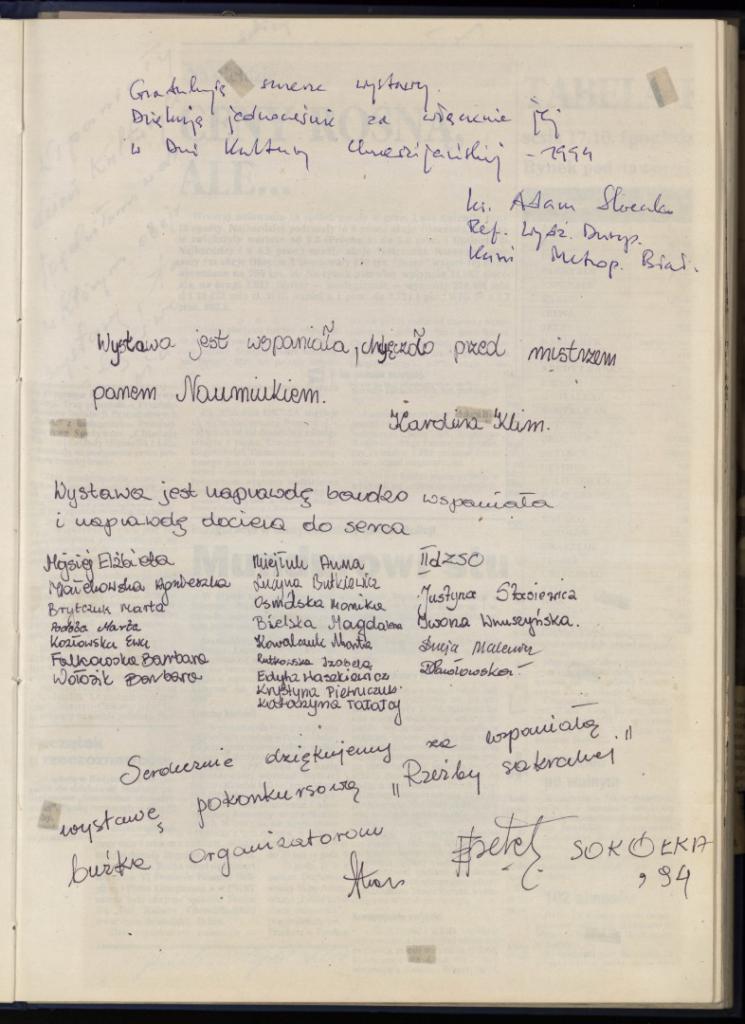 Gratuluję wystawy.
Dziękuję jednocześnie za włączenie jej
w Dni Kultury Chrześcijańskiej - 1994
ks. Adam
Ref. Wydz. Duszp.
Kurii Metrop. Biał.
Wystawa jest wspaniała, chylę czoło przed mistrzem
panem Naumiukiem.
Karolina Klim.
Wystawa jest naprawdę bardzo wspaniała
i naprawdę dociera do serca
Mojsiej Elżbieta
Małachowska Agnieszka
Brytczuk Marta
Marta
Kozłowska Ewa
Falkowska Barbara
Wołosik Barbara
Miejluk Anna
Lucyna Butkiewicz
Osmólska Monika
Bielska Magdalena
Kowalczuk Marta
Rutkowska Izabela
Edyta Haszkiewicz
Krystyna Pietruczuk.
Katarzyna Tałałaj
II d ZSO
Justyna Stasiewicz
Iwona Wnuszyńska.
Łucja
Serdecznie dziękujemy za wspaniałą
wystawę pokonkursową "Rzeźby sakralnej"
buźka organizatorom
SOKÓŁKA
'94
CENY ROSNĄ,
ALE...
TABELA